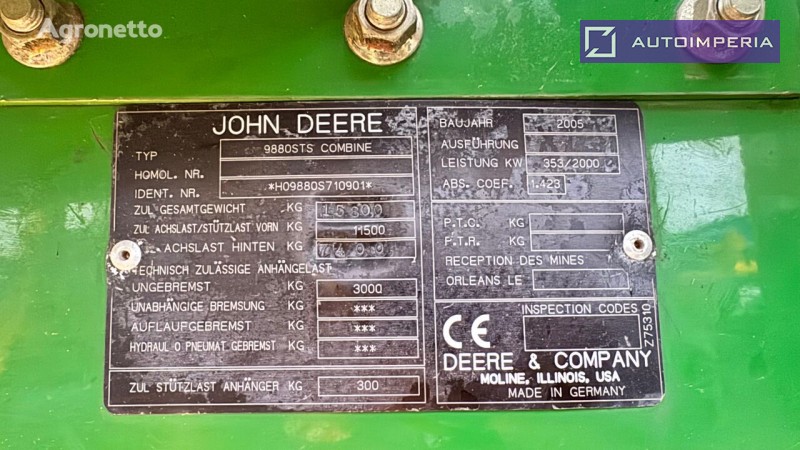 Agronetto
AUTOIMPERIA
JOHN DEERE
TYP 9880STS COMBINE
HOMOL. NR.
IDENT. NR. *H09880S710901*
ZUL GESAMTGEWICHT KG 15300
ZUL ACHSLAST/STÜTZLAST VORN KG 11500
ACHSLAST HINTEN KG
TECHNISCH ZULÄSSIGE ANHÄNGELAST
UNGEBREMST KG 3000
UNABHÄNGIGE BREMSUNG KG ***
AUFLAUFGEBREMST KG ***
HYDRAUL O PNEUMAT GEBREMST KG ***
ZUL STÜTZLAST ANHÄNGER KG 300
BAUJAHR 2005
AUSFÜHRUNG
LEISTUNG KW 353/2000
ABS. COEF. 1.423
P.T.C. KG
F.T.R. KG
RECEPTION DES MINES
ORLEANS LE
INSPECTION CODES
CE
Z75310
DEERE & COMPANY
MOLINE, ILLINOIS, USA
MADE IN GERMANY